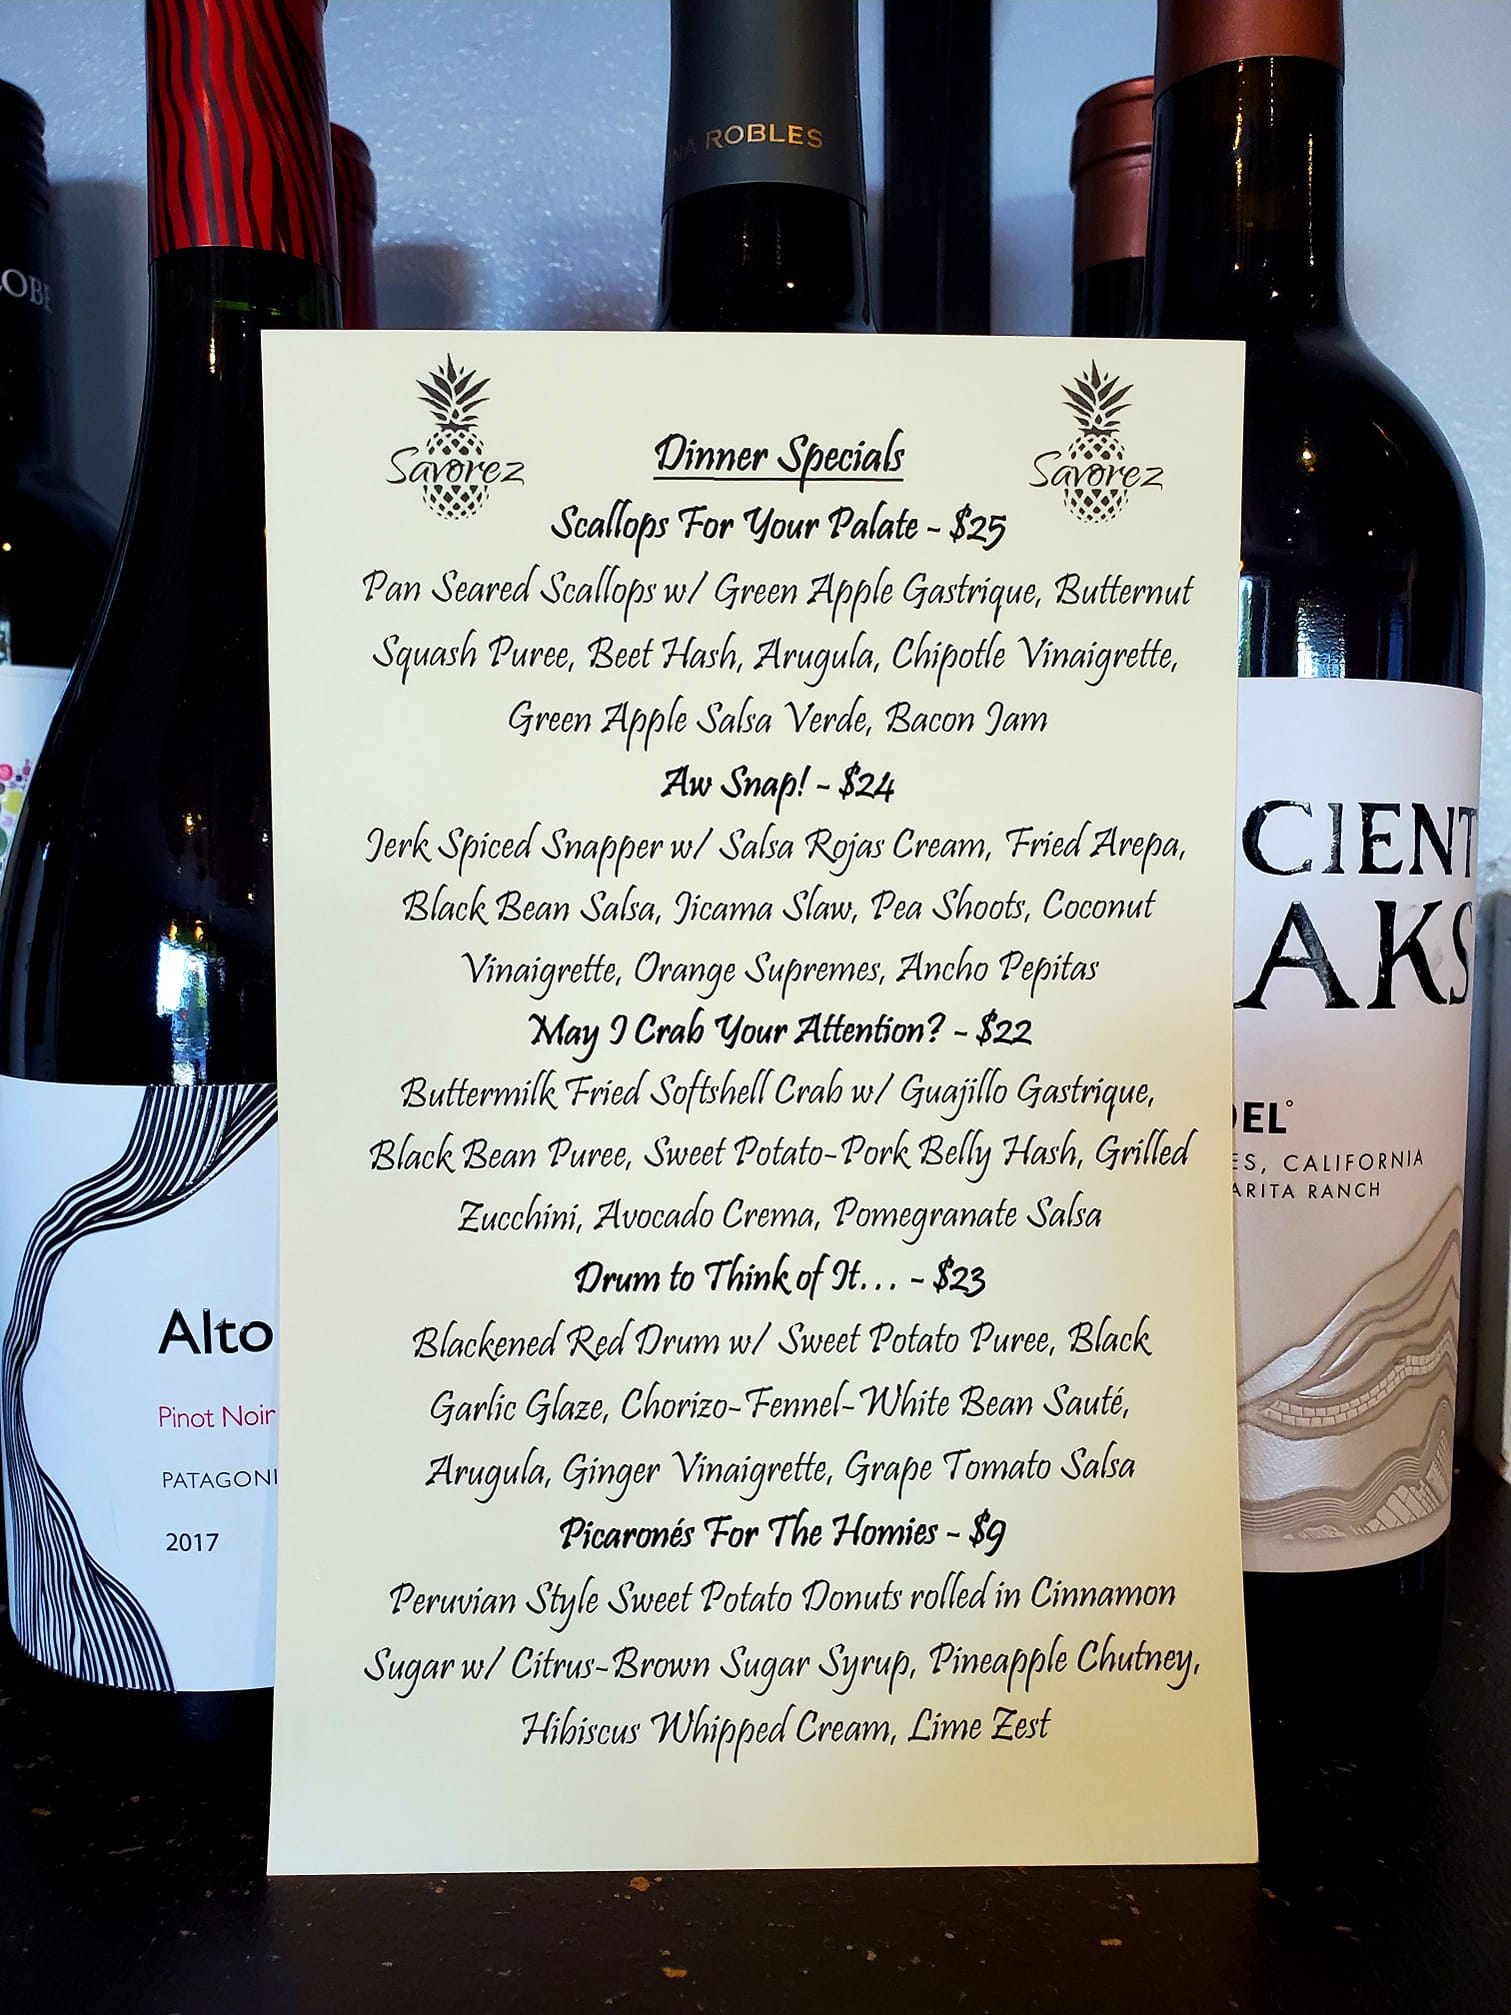 NA ROBLES
OBE
Savorez
Savorez
Dinner Specials
Scallops For Your Palate - $25
Pan Seared Scallops w/ Green Apple Gastrique, Butternut
Squash Puree, Beet Hash, Arugula, Chipotle Vinaigrette,
Green Apple Salsa Verde, Bacon Jam
Aw Snap! - $24
Jerk Spiced Snapper w/ Salsa Rojas Cream, Fried Arepa,
Black Bean Salsa, Jicama Slaw, Pea Shoots, Coconut
Vinaigrette, Orange Supremes, Ancho Pepitas
May I Crab Your Attention? - $22
Buttermilk Fried Softshell Crab w/ Guajillo Gastrique,
Black Bean Puree, Sweet Potato-Pork Belly Hash, Grilled
Zucchini, Avocado Crema, Pomegranate Salsa
Drum to Think of It... - $23
Blackened Red Drum w/ Sweet Potato Puree, Black
Garlic Glaze, Chorizo-Fennel-White Bean Sauté,
Arugula, Ginger Vinaigrette, Grape Tomato Salsa
Picaronés For The Homies - $9
Peruvian Style Sweet Potato Donuts rolled in Cinnamon
Sugar w/ Citrus-Brown Sugar Syrup, Pineapple Chutney,
Hibiscus Whipped Cream, Lime Zest
Alto
Pinot Noir
PATAGONI
2017
CIENT
AKS
DEL
ES, CALIFORNIA
ARITA RANCH